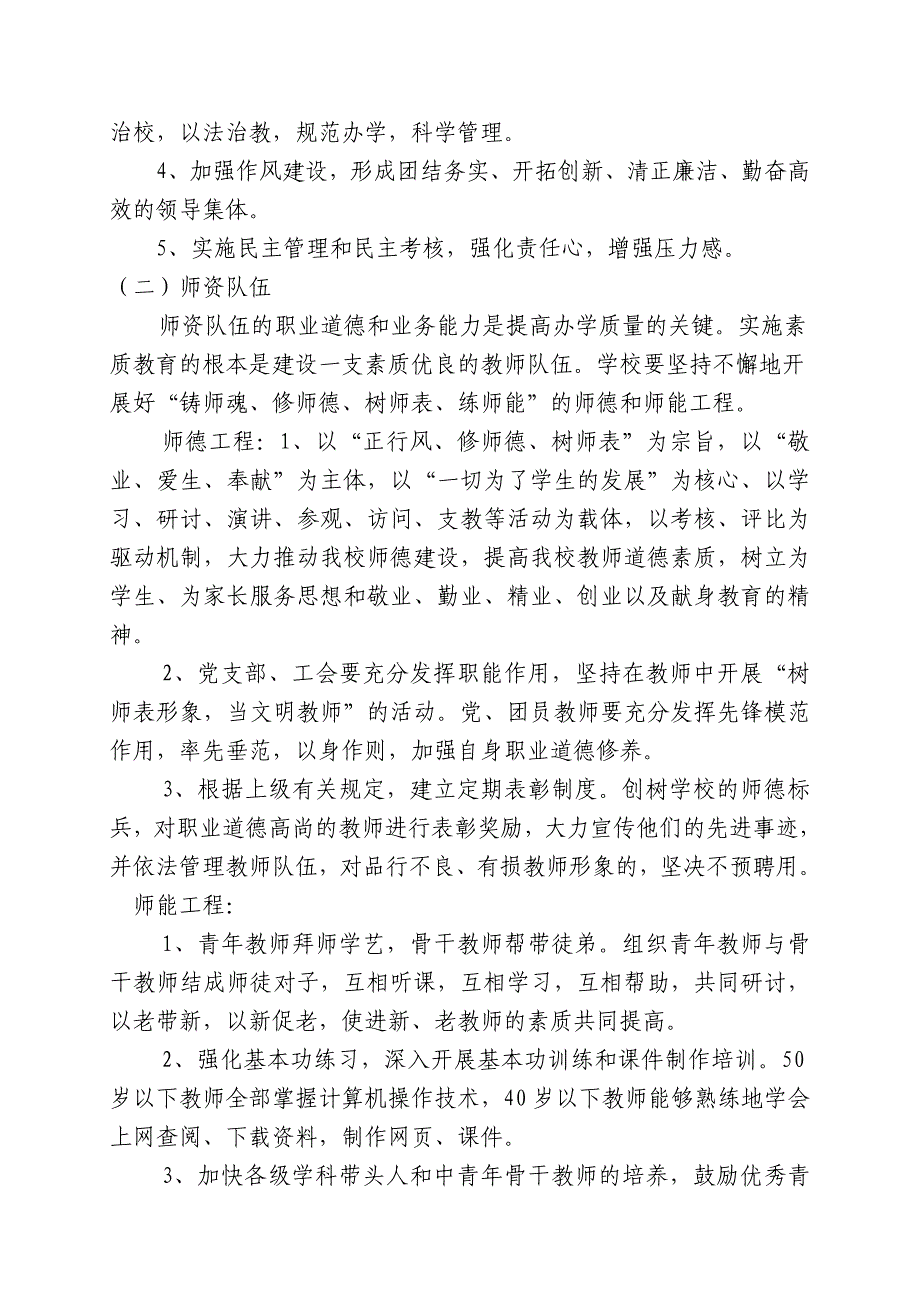 治校，以法治教，规范办学，科学管理。
4、加强作风建设，形成团结务实、开拓创新、清正廉洁、勤奋高
效的领导集体。
5、实施民主管理和民主考核，强化责任心，增强压力感。
（二）师资队伍
师资队伍的职业道德和业务能力是提高办学质量的关键。实施素
质教育的根本是建设一支素质优良的教师队伍。学校要坚持不懈地开
展好“铸师魂、修师德、树师表、练师能”的师德和师能工程。
师德工程：1、以“正行风、修师德、树师表”为宗旨，以“敬
业、爱生、奉献”为主体，以“一切为了学生的发展”为核心、以学
习、研讨、演讲、参观、访问、支教等活动为载体，以考核、评比为
驱动机制，大力推动我校师德建设，提高我校教师道德素质，树立为
学生、为家长服务思想和敬业、勤业、精业、创业以及献身教育的精
神。
2、党支部、工会要充分发挥职能作用，坚持在教师中开展“树
师表形象，当文明教师”的活动。党、团员教师要充分发挥先锋模范
作用，率先垂范，以身作则，加强自身职业道德修养。
3、根据上级有关规定，建立定期表彰制度。创树学校的师德标
兵，对职业道德高尚的教师进行表彰奖励，大力宣传他们的先进事迹，
并依法管理教师队伍，对品行不良、有损教师形象的，坚决不预聘用。
师能工程：
1、青年教师拜师学艺，骨干教师帮带徒弟。组织青年教师与骨
干教师结成师徒对子，互相听课，互相学习，互相帮助，共同研讨，
以老带新，以新促老，使进新、老教师的素质共同提高。
2、强化基本功练习，深入开展基本功训练和课件制作培训。50
岁以下教师全部掌握计算机操作技术，40 岁以下教师能够熟练地学会
上网查阅、下载资料，制作网页、课件。
3、加快各级学科带头人和中青年骨干教师的培养，鼓励优秀青